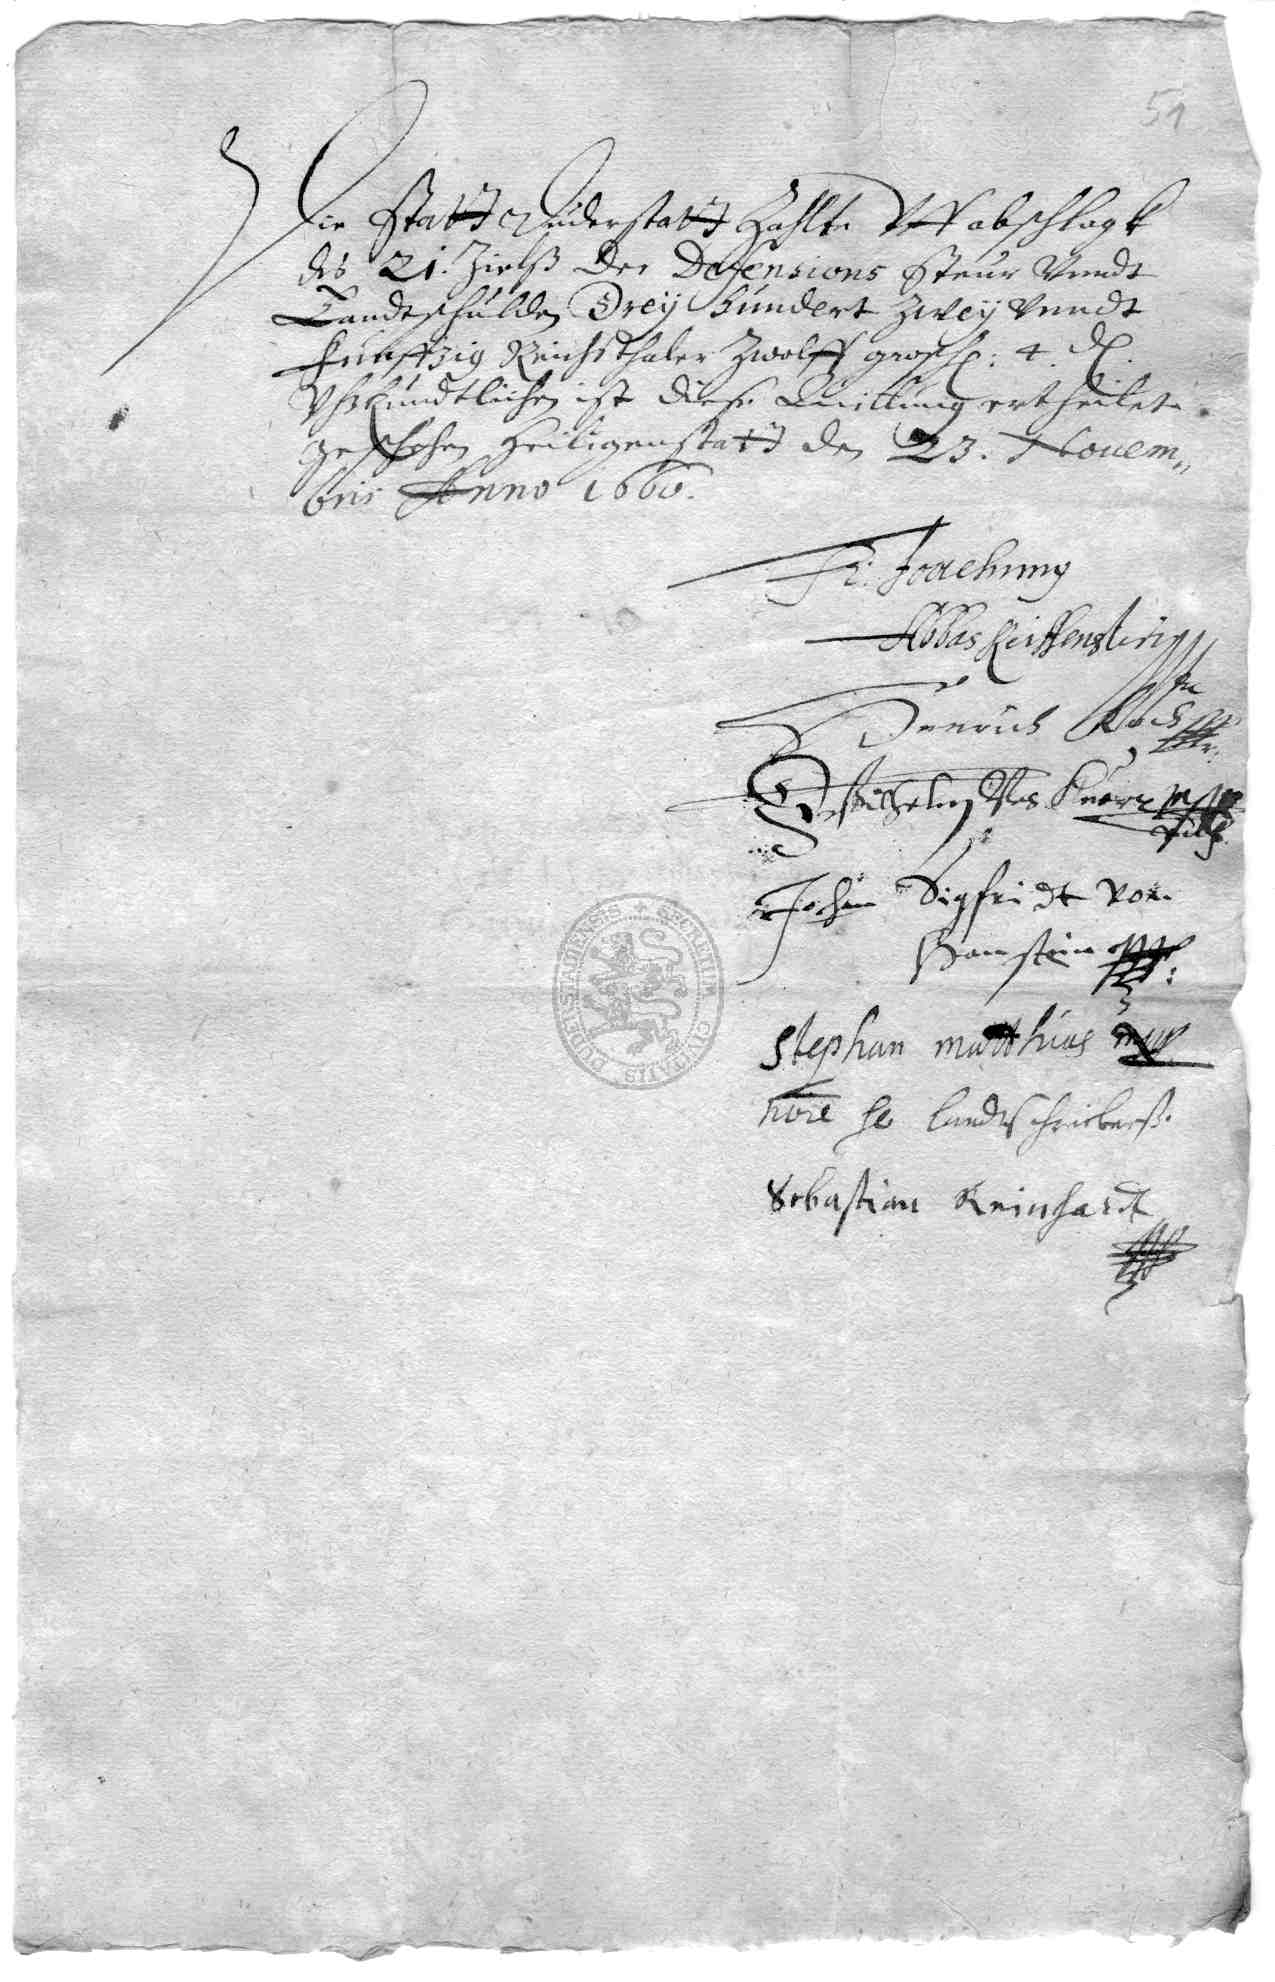 51
Die Statt Duderstatt Zahlte Vff abschlagk
des 21. Zielß der Defensions Steur Vnndt
Landtschulden Drey hundert Zwey Vnndt
funffzig Reichsthaler Zwolff grosch: 4 d.
Vhrkundtlichen ist diese Quittung ertheilet
geschehen Heiligenstatt den 23. Novem„
bris Anno 1660.
Fr: Joachimg
Abbas Reiffenstein
Henrich Koch
Wilhelm Knorr
Johan Sigfridt von
Hanstein
Stephan Matthias
landtschreiberß.
Sebastian Reinhardt
SECRETUM CIVITATIS DUDERSTADENSIS